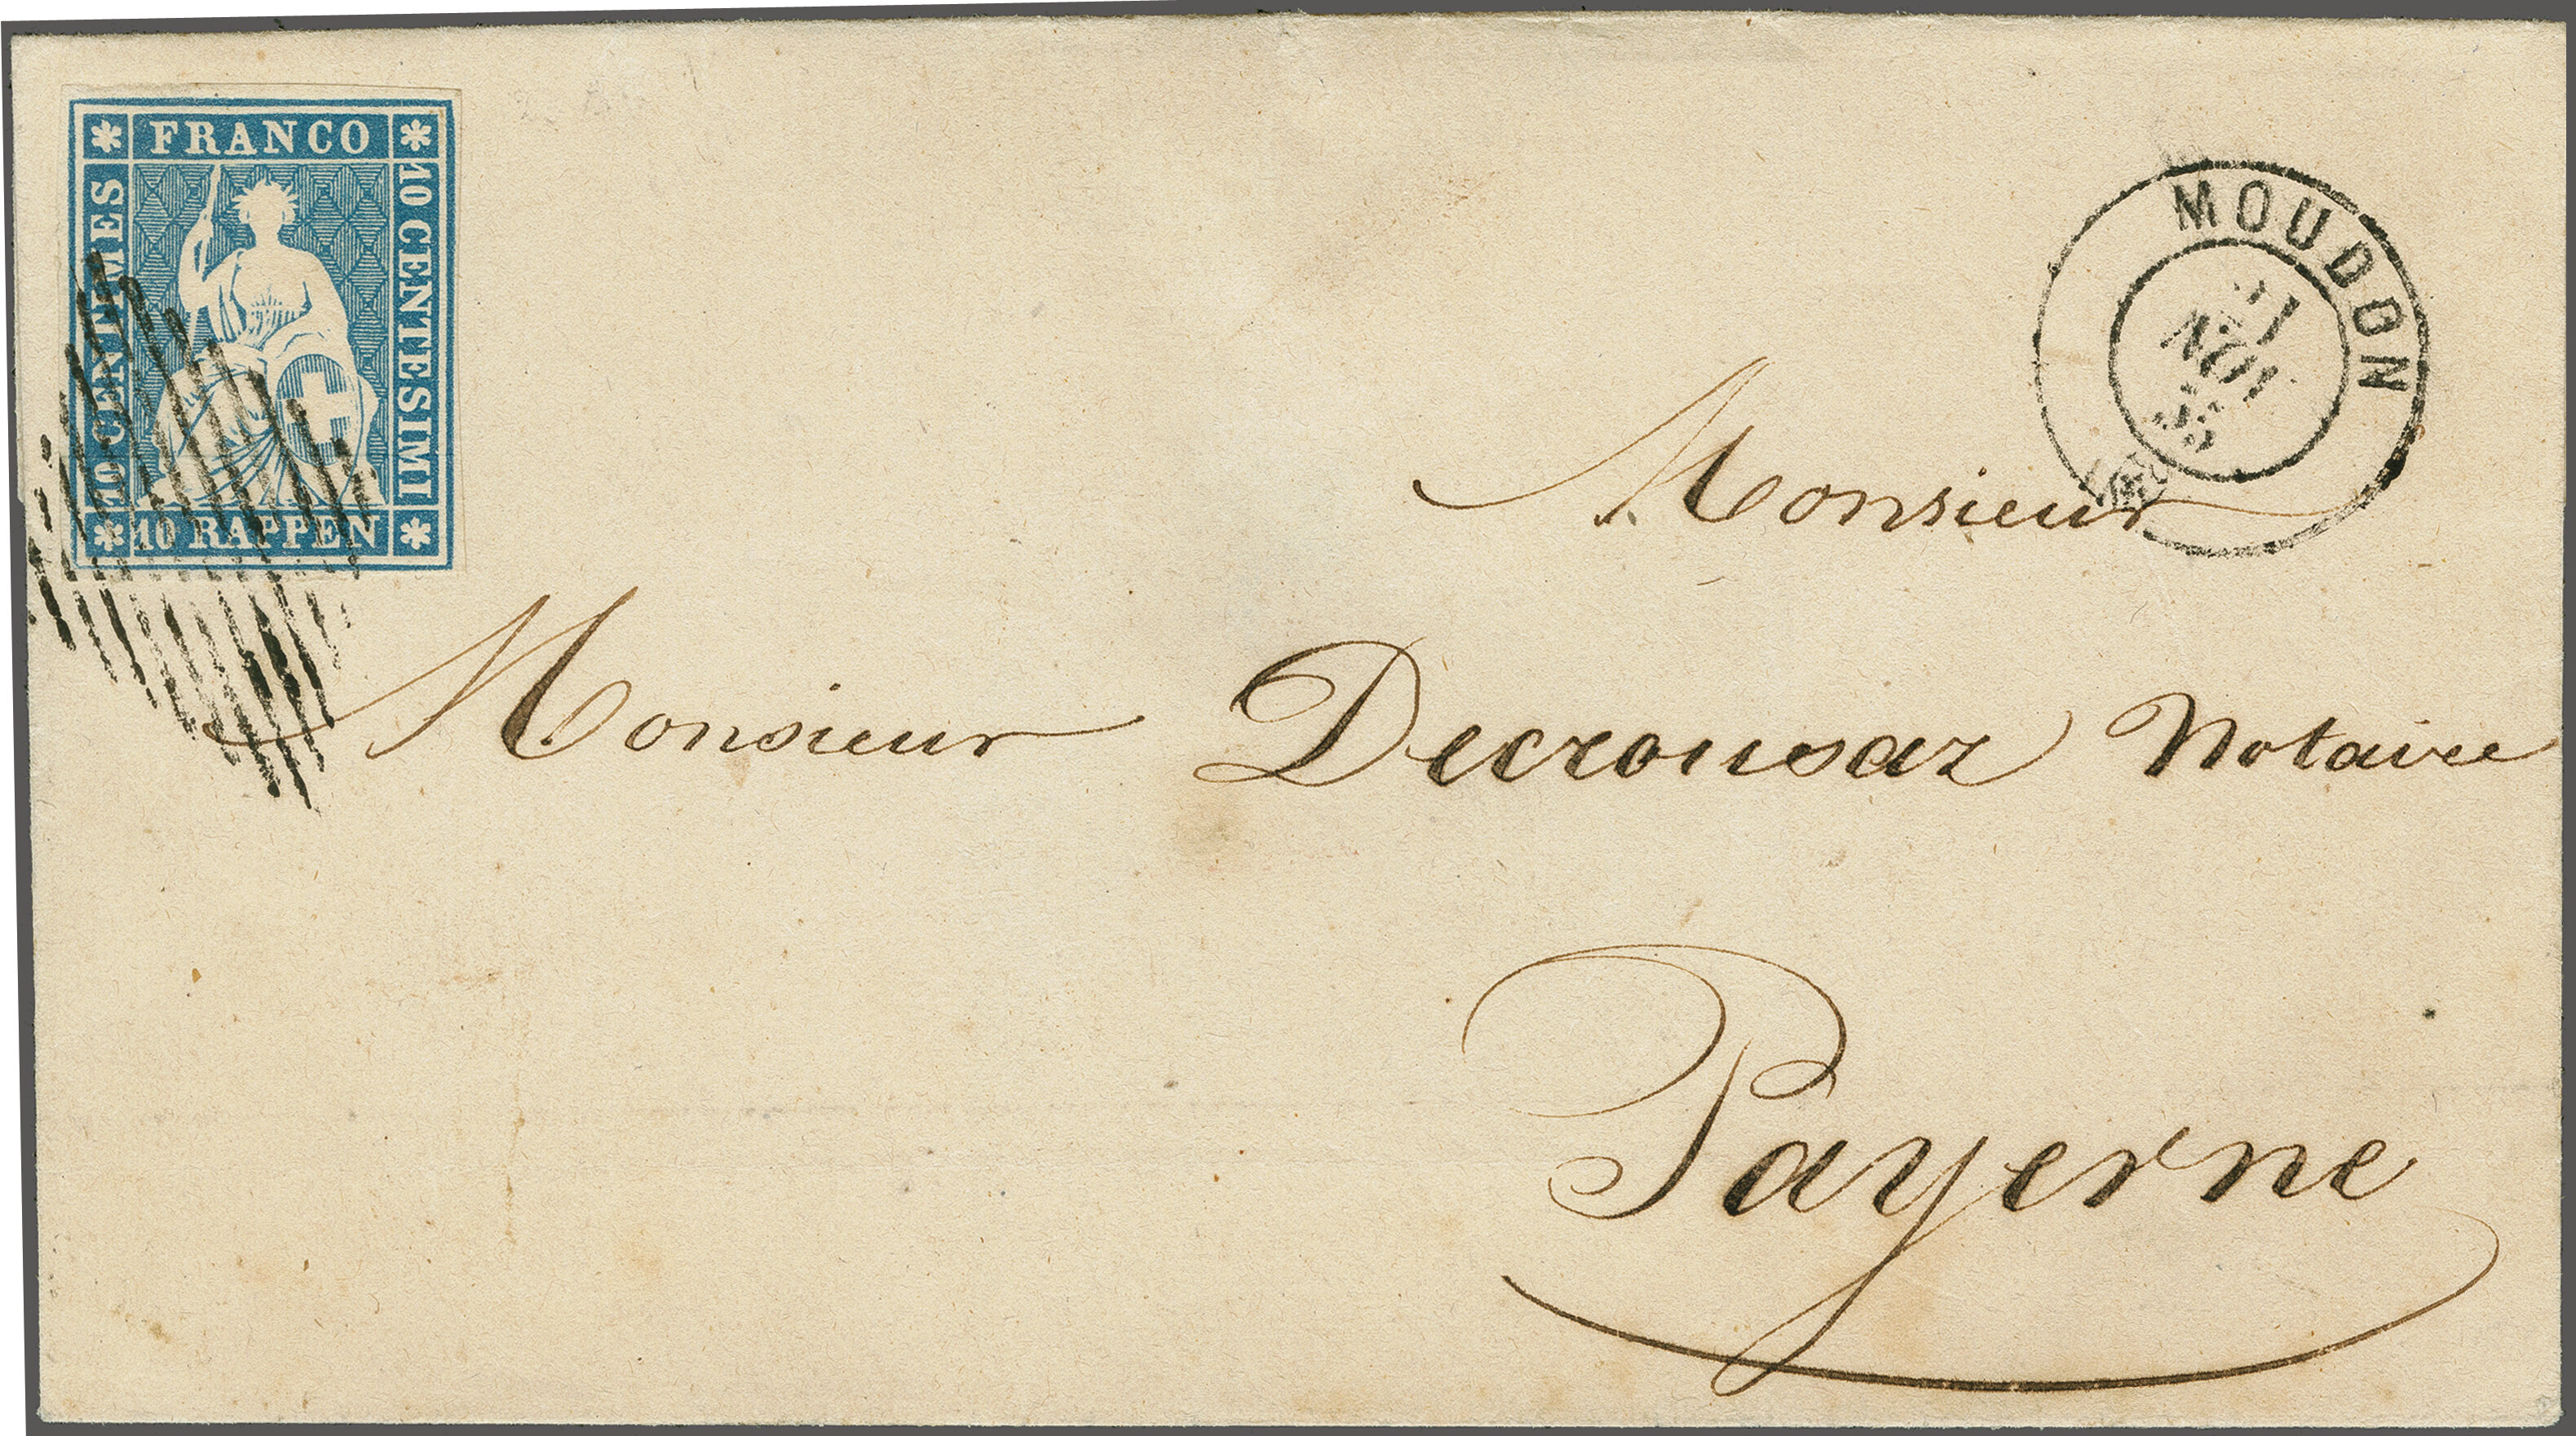 FRANCO
10 CENTIMES
10 CENTESIMI
10 RAPPEN
MOUDON
NOV
55
Monsieur
Monsieur Decrousaz Notaire
Payerne